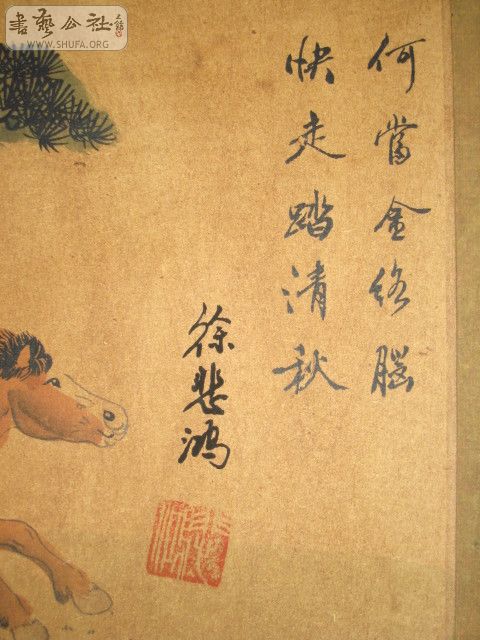 書藝公社
WWW.SHUFA.ORG
何當金络腦
快走踏清秋
徐悲鴻